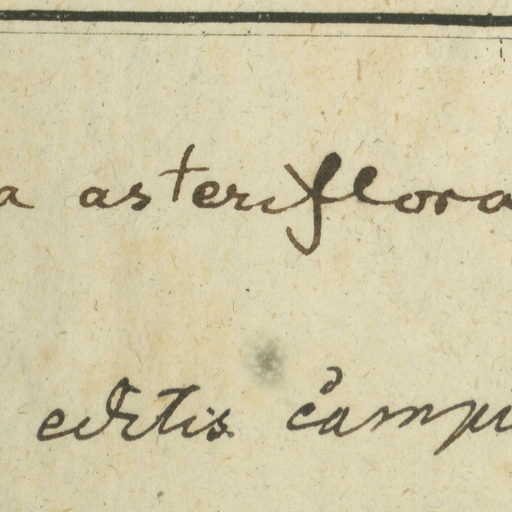 a asteriflora
editis campi